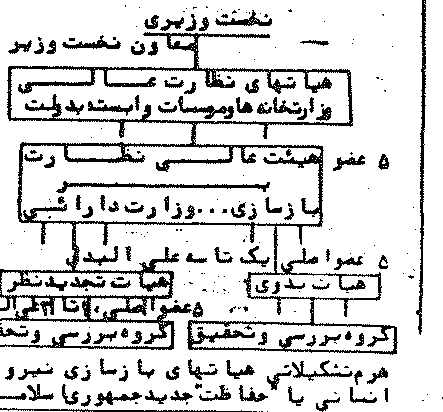 نخست وزیری
معاون نخست وزیر
هیاتهای نظارت عالی
وزارتخانه هاوموسسات وابسته بدولت
۵ عضو هیئت عالی نظارت
بر
بازسازی...وزارت دارائی
۵ عضواصلی یک تاسه علی البدل
هیات بدوی هیات تجدیدنظر
۵عضواصلی، تا علی ال
گروه بررسی و تحقیق گروه بررسی وتحق
هرم تشکیلاتی هیاتهای بازسازی نیرو
انسانی یا "حفاظت"جدیدجمهوری اسلام